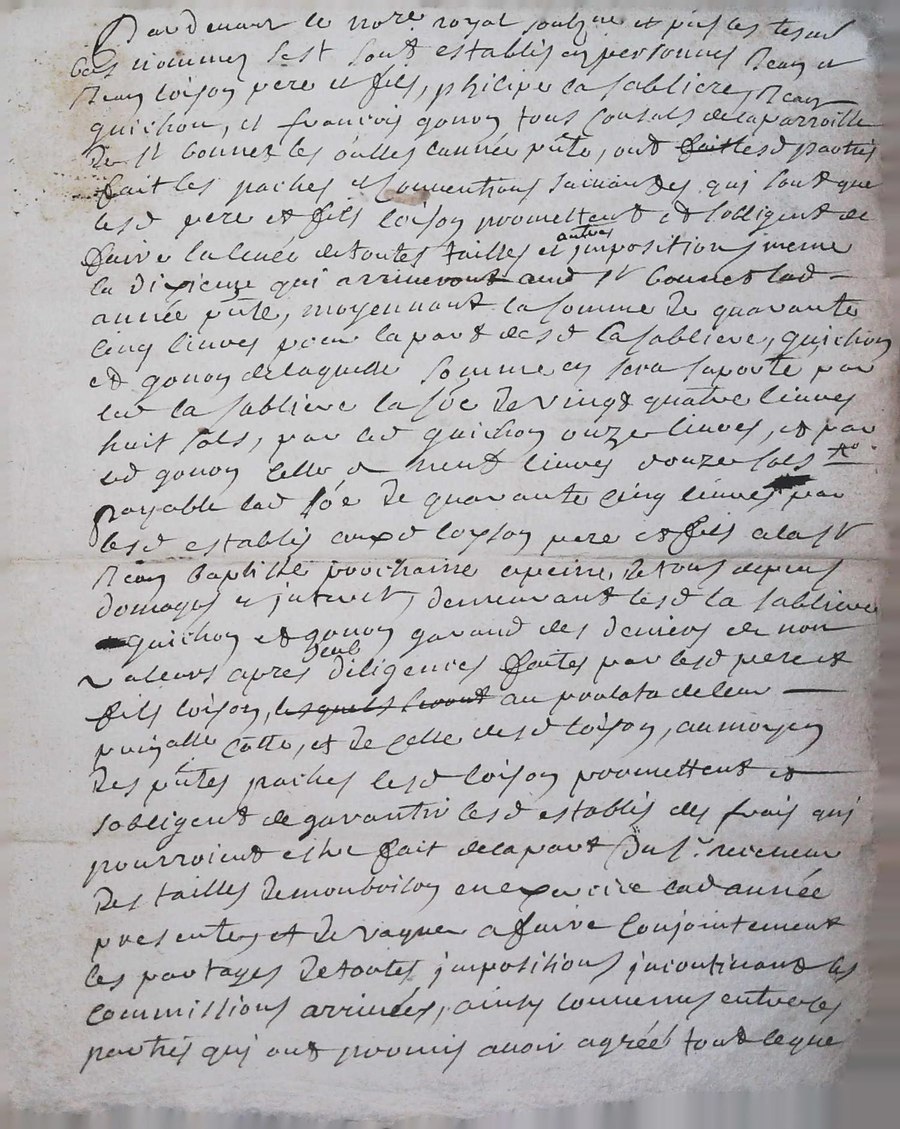 Pardevant le nore royal soubzne et pnts les tesm
bas nommez sest sont establis en personnes Jean et
Jean loison pere et fils, philipe la sabliere, Jean
guichon, et francois gonon tous consuls de la parroisse
de st bonnet les oulles lannée pnte, ont fait lesd parties
fait les paches et conventions suivantes qui sont que
lesd pere et fils loison promettent et sobligent de
faire la levée de toutes tailles et autres impositions meme
la dixieme qui arriveront aud st bonnet lad
année pnte, moyennant la somme de quarante
cinq livres pour la part desd la sabliere, guichon
et gonon de laquelle somme en sera suporté par
led la sabliere la soe de vingt quatre livres
huit sols, par led guichon onze livres, et par
led gonon celle de neuf livres douze sols
payable lad soe de quarante cinq livres par
lesd establis auxd loyson pere et fils a la st
Jean Baptiste prochaine a peine de tous depens
domages et interets, demeurant lesd la sabliere
guichon et gonon garand des deniers de non
valeurs apres deub diligences faites par lesd pere et
fils loison, lesquels seront au prolata de leur
cotte, et de celle desd loison, au moyen
des pntes paches lesd loison promettent et
sobligent de garantir lesd establis des frais qui
pourroient estre fait de la part du sr. receveur
des tailles de montbrison en exercice lad année
presente, et de vaquer a faire conjointement
les partages de toutes impositions incontinant les
commissions arrivées, ainsy convenus entre les
parties qui ont promis avoir agréé tout ce que